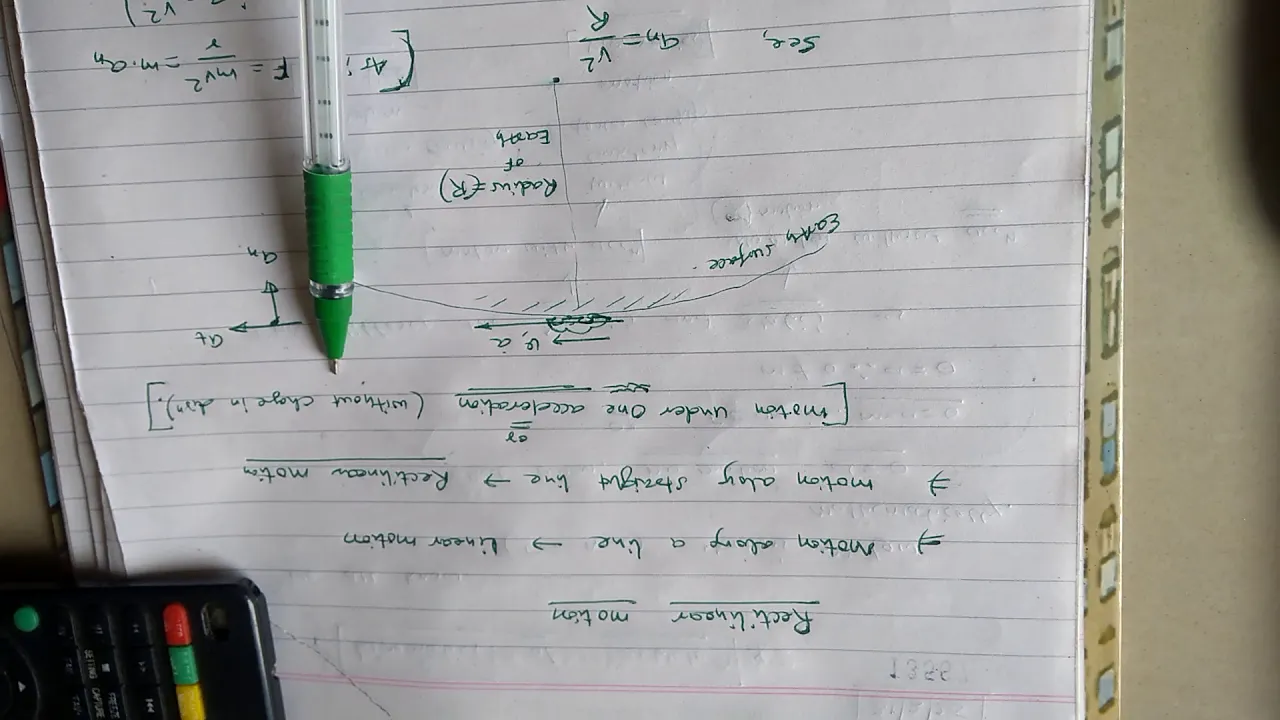 Rectilinear motion
⇒ Motion along a line → Linear motion
⇒ motion along straight line → Rectilinear motion
or
[motion under one acceleration (without change in dirn).]
v, a
at
an
Earth surface
Radius (R)
of
Earth
See, an = v²/R
[As;
F = mv²/r = m.an
v²)